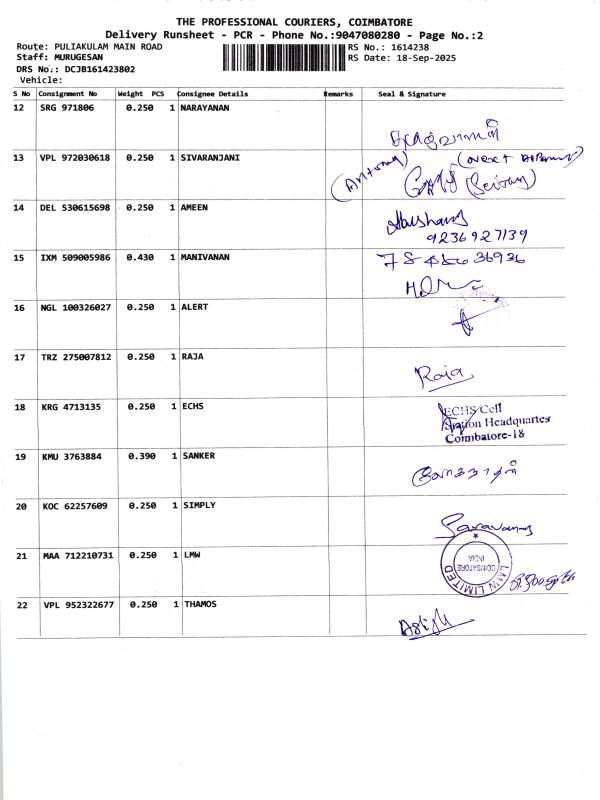 THE PROFESSIONAL COURIERS, COIMBATORE
Delivery Runsheet - PCR - Phone No.:9047080280 - Page No.:2
Route: PULIAKULAM MAIN ROAD RS No.: 1614238
Staff: MURUGESAN RS Date: 18-Sep-2025
DRS No.: DCJB161423802
Vehicle:
S No Consignment No Weight PCS Consignee Details Remarks Seal & Signature
12 SRG 971806 0.250 1 NARAYANAN
13 VPL 972030618 0.250 1 SIVARANJANI
14 DEL 530615698 0.250 1 AMEEN
9236927139
15 IXM 509005986 0.430 1 MANIVANAN
16 NGL 100326027 0.250 1 ALERT
17 TRZ 275007812 0.250 1 RAJA
Raja
18 KRG 4713135 0.250 1 ECHS
ECHS Cell
Station Headquartes
Coimbatore-18
19 KMU 3763884 0.390 1 SANKER
20 KOC 62257609 0.250 1 SIMPLY
Saravanan
21 MAA 712210731 0.250 1 LMW
LMW LIMITED
COIMBATORE
INDIA
22 VPL 952322677 0.250 1 THAMOS